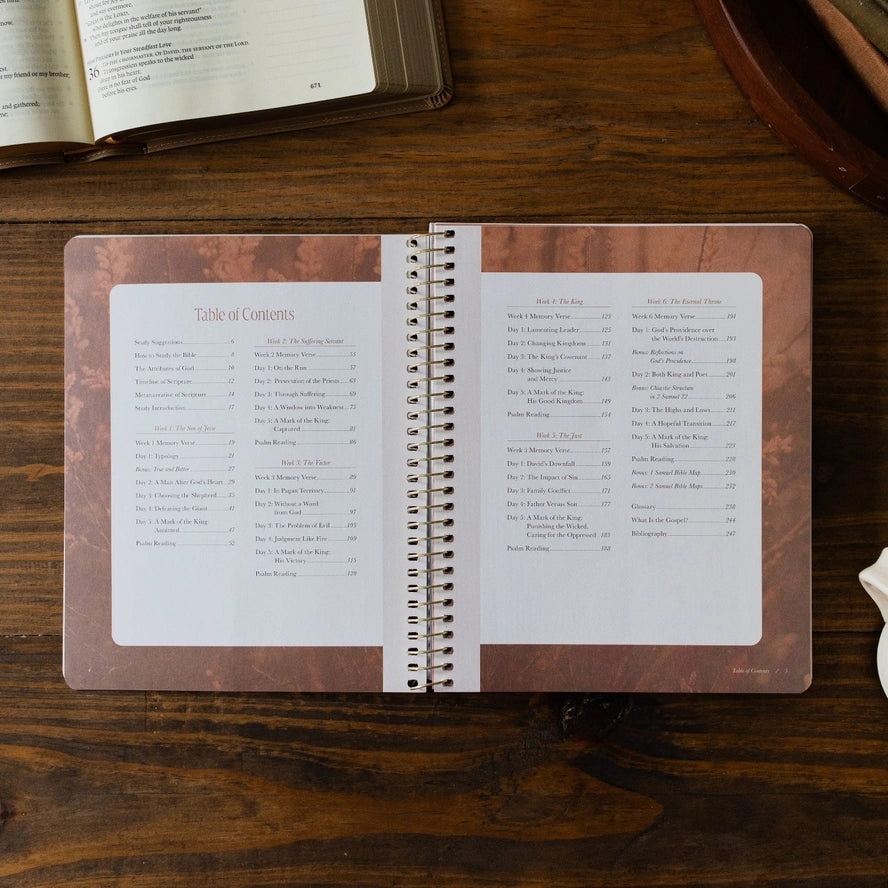 now.
est.
or my friend or my brother;
and gathered;
me;
about for joy
and say evermore,
"Great is the LORD,
who delights in the welfare of his servant!"
Then my tongue shall tell of your righteousness
and of your praise all the day long.
Precious Is Your Steadfast Love
TO THE CHOIRMASTER. OF DAVID, THE SERVANT OF THE LORD.
36 Transgression speaks to the wicked
deep in his heart;
there is no fear of God
before his eyes.
671
Table of Contents
Study Suggestions 6
How to Study the Bible 8
The Attributes of God 10
Timeline of Scripture 12
Metanarrative of Scripture 14
Study Introduction 17
Week 1: The Son of Jesse
Week 1 Memory Verse 19
Day 1: Typology 21
Bonus: True and Better 27
Day 2: A Man After God's Heart 29
Day 3: Choosing the Shepherd 35
Day 4: Defeating the Giant 41
Day 5: A Mark of the King:
Anointed 47
Psalm Reading 52
Week 2: The Suffering Servant
Week 2 Memory Verse 55
Day 1: On the Run 57
Day 2: Persecution of the Priests 63
Day 3: Through Suffering 69
Day 4: A Window into Weakness 75
Day 5: A Mark of the King:
Captured 81
Psalm Reading 86
Week 3: The Victor
Week 3 Memory Verse 89
Day 1: In Pagan Territory 91
Day 2: Without a Word
from God 97
Day 3: The Problem of Evil 103
Day 4: Judgment Like Fire 109
Day 5: A Mark of the King:
His Victory 115
Psalm Reading 120
Week 4: The King
Week 4 Memory Verse 123
Day 1: Lamenting Leader 125
Day 2: Changing Kingdoms 131
Day 3: The King's Covenant 137
Day 4: Showing Justice
and Mercy 143
Day 5: A Mark of the King:
His Good Kingdom 149
Psalm Reading 154
Week 5: The Just
Week 5 Memory Verse 157
Day 1: David's Downfall 159
Day 2: The Impact of Sin 165
Day 3: Family Conflict 171
Day 4: Father Versus Son 177
Day 5: A Mark of the King:
Punishing the Wicked,
Caring for the Oppressed 183
Psalm Reading 188
Week 6: The Eternal Throne
Week 6 Memory Verse 191
Day 1: God's Providence over
the World's Destruction 193
Bonus: Reflections on
God's Providence 198
Day 2: Both King and Poet 201
Bonus: Chiastic Structure
in 2 Samuel 22 206
Day 3: The Highs and Lows 211
Day 4: A Hopeful Transition 217
Day 5: A Mark of the King:
His Salvation 223
Psalm Reading 228
Bonus: 1 Samuel Bible Map 230
Bonus: 2 Samuel Bible Maps 232
Glossary 238
What Is the Gospel? 244
Bibliography 247
Table of Contents / 5